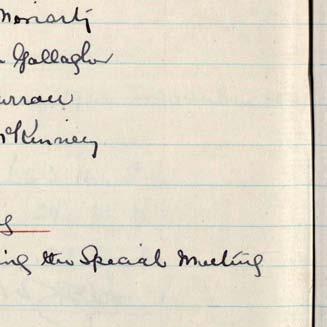 Moriarty
Gallagher
Curran
McKinney
ing the Special Meeting